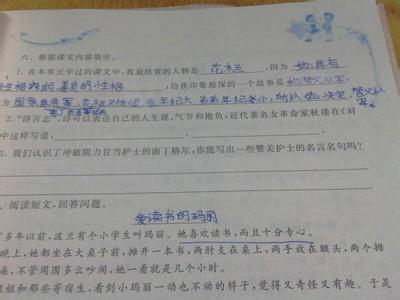 六、根据课文内容填空。
1. 在本单元学过的课文中，我最欣赏的人物是 花木兰 ，因为 她具有
性格 的性格 ，给我印象最深的一个故事是 她替父从军，
因为国家 用军，花木兰又怕爹年纪大 弟弟年纪太小，所以她决定 替父从
军
2. “诗言志”，诗可以表达自己的人生观、气节和抱负，近代著名女革命家秋瑾在《对
中这样写道，
3. 我们认识了冲破阻力甘当护士的南丁格尔，你能写出一些赞美护士的名言名句吗？
阅读短文，回答问题。
爱读书的玛丽
多年以前，波兰有个小学生叫玛丽。她喜欢读书，而且十分专心。
晚上，她都坐在大桌子前，摊开一本书，两肘支在桌上，两手放在额头，两个拇
朵，不管周围多么吵闹，她一看就是几个小时。
姐和那些寄宿生，看到小玛丽一动也不动的样子，觉得又奇怪又有趣。于是